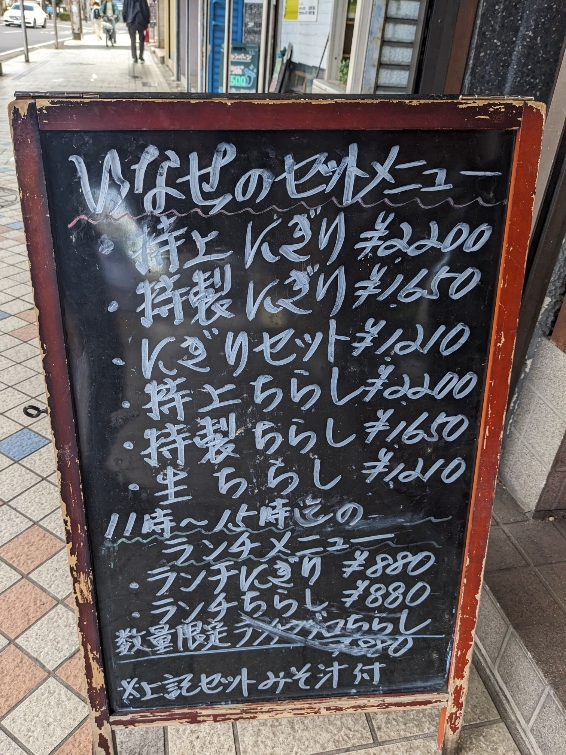 いなせのセットメニュー
・特上にぎり ¥2200
・特製にぎり ¥1650
・にぎりセット ¥1210
・特上ちらし ¥2200
・特製ちらし ¥1650
・生ちらし ¥1210
11時～15時迄の
ランチメニュー
・ランチにぎり ¥880
・ランチちらし ¥880
数量限定 ちらし
※上記セットみそ汁付